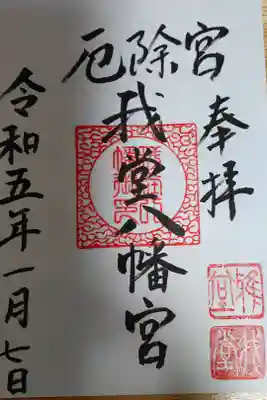 奉拝
厄除宮
我堂八幡宮
令和五年一月七日